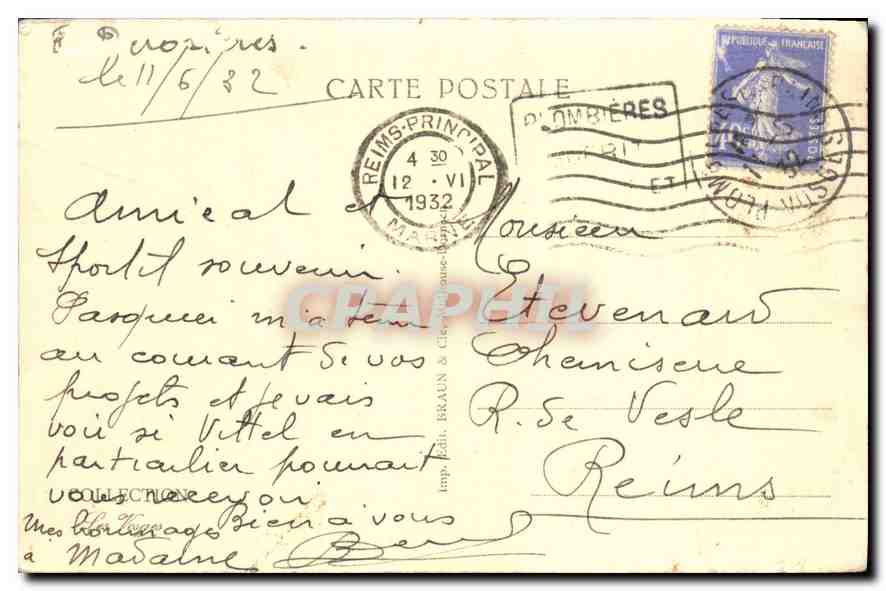 le 11/6/32
CARTE POSTALE
REPUBLIQUE FRANÇAISE
POSTES
PLOMBIÈRES
ET
REIMS-PRINCIPAL
4 30
12 · VI
1932
MARNE
Amical et
Sportif souvenir.
Pasquier m'a tenu
au courant de vos
projets et je vais
voir si Vittel en
particulier pourrait
vous recevoir
Bien à vous
Mes hommages
à Madame
COLLECTION
Les Vosges
Imp. Edit. BRAUN & Cie, Mulhouse-Dornach
Monsieur
Etevenard
Chemiserie
R. de Vesle
Reims
CRAPHIL